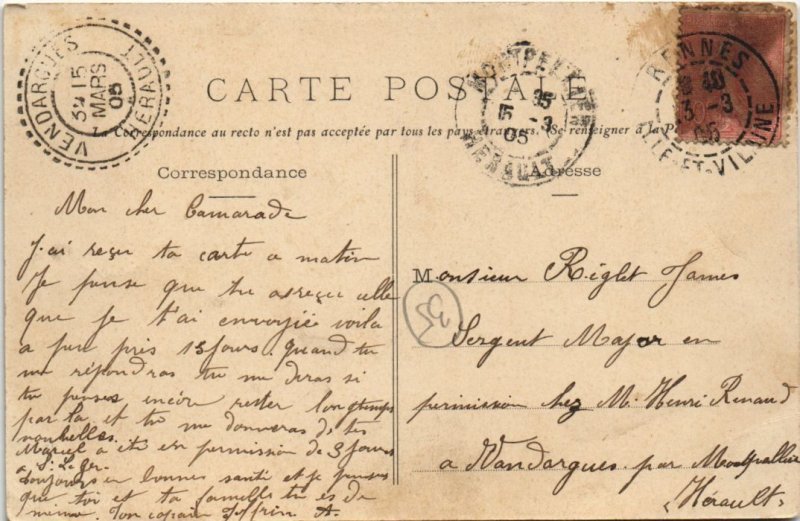 VENDARGUES
HÉRAULT
15
MARS
05
CARTE POSTALE
MONTPELLIER
HERAULT
15
-3
05
RENNES
3 -3
05
ILLE-ET-VILAINE
La Correspondance au recto n'est pas acceptée par tous les pays étrangers. Se renseigner à la P
Correspondance
Mon cher Camarade
J'ai reçu ta carte ce matin
Je pense que tu as reçu celle
que je t'ai envoyiée voila
a peu près 15 jours. Quand tu
me répondras tu me diras si
tu penses encore rester longtemps
par la, et tu me donneras de tes
nouvelles.
Marcel a été en permission de 3 jours
a St Léger.
Toujours en bonnes santé et je penses
que toi et ta famille tu es de
meme. Ton copain A.
Adresse
Monsieur Riglet James
35
Sergent Major en
permission chez M. Henri Renaud
a Vandargues par Montpellier
(Hérault)